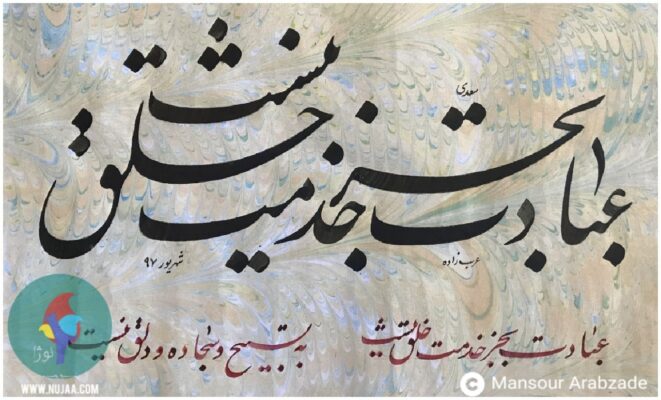 سعدی
عبادت بجز خدمت خلق نیست
عرب‌زاده
شهریور ۹۷
عبادت بجز خدمت خلق نیست به تسبیح و سجاده و دلق نیست
نوژا
WWW.NUJAA.COM
© Mansour Arabzade